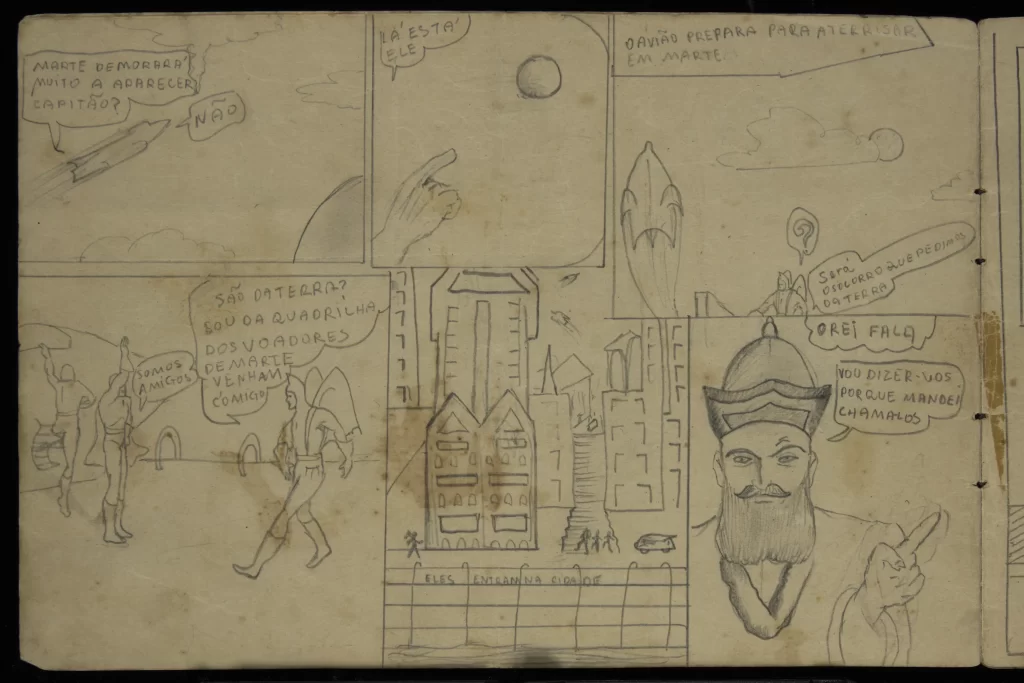 MARTE DEMORARÁ
MUITO A APARECER
CAPITÃO?
NÃO
LÁ ESTÁ
ELE
O AVIÃO PREPARA PARA ATERRISAR
EM MARTE
?
Será
O SOCORRO QUE PEDIMOS
DA TERRA
SOMOS
AMIGOS
SÃO DA TERRA?
SOU DA QUADRILHA
DOS VOADORES
DE MARTE
VENHAM
COMIGO
ELES ENTRAM NA CIDADE
O REI FALA
VOU DIZER-VOS
PORQUE MANDEI
CHAMALOS